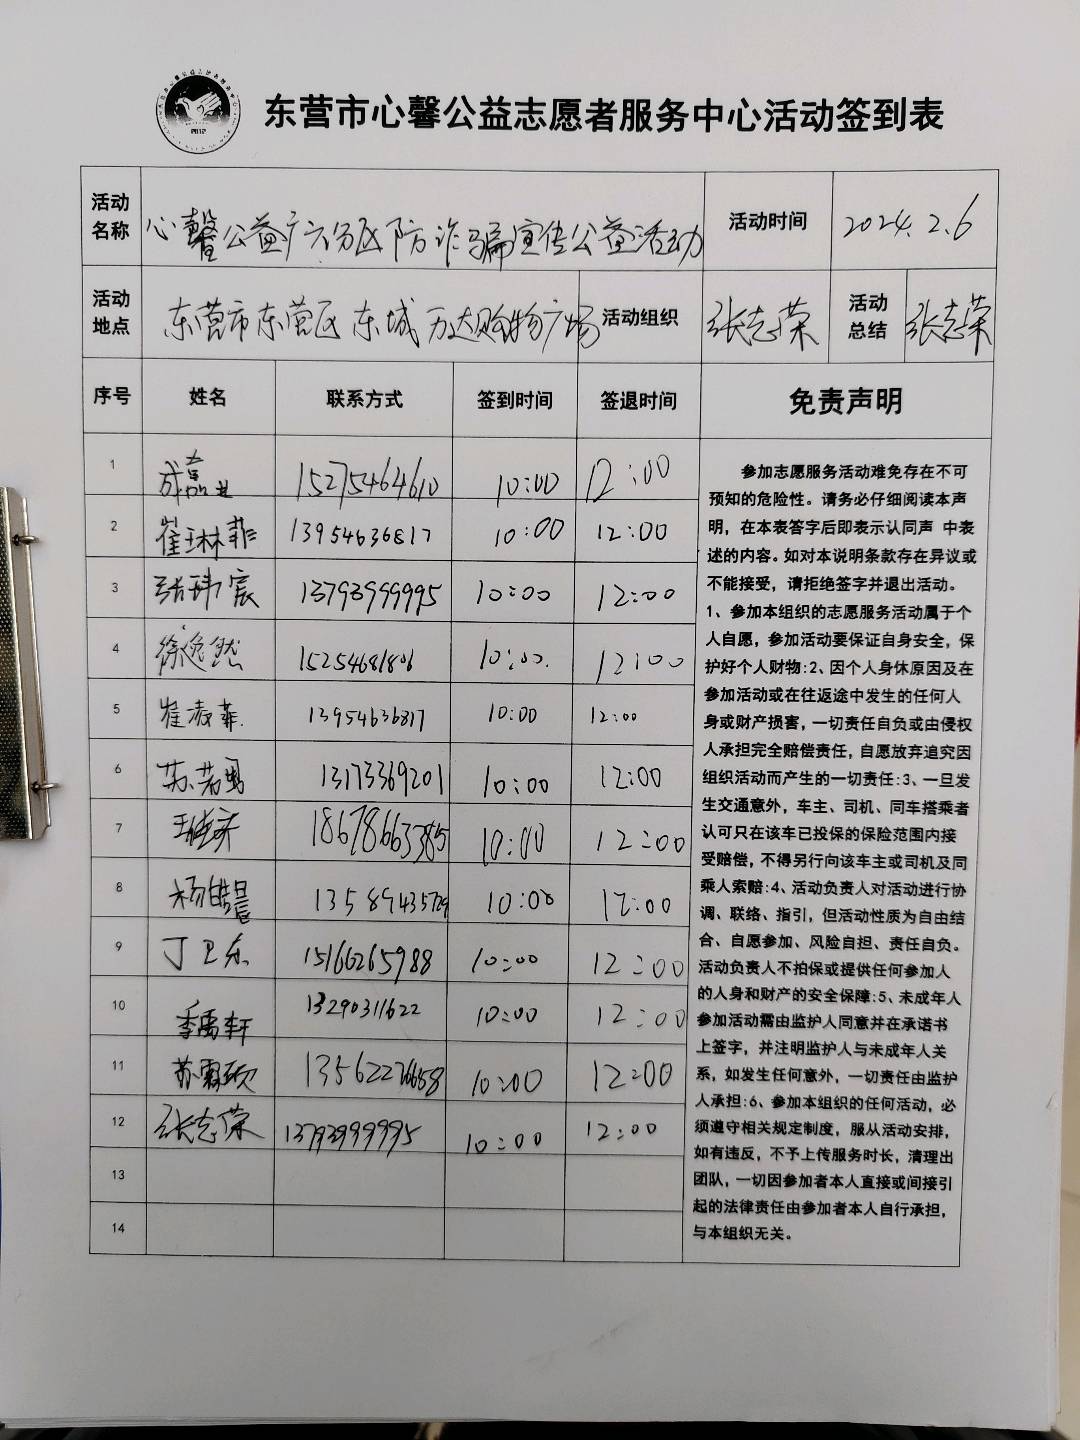 东营市心馨公益志愿者服务中心活动签到表
2012
活动名称 心馨公益广六分区防诈骗宣传公益活动 活动时间 2024.2.6
活动地点 东营市东营区东城万达购物广场 活动组织 张志荣 活动总结 张志荣
序号 姓名 联系方式 签到时间 签退时间 免责声明
1 成嘉 15275464610 10:00 12:00
2 崔琳菲 13954636817 10:00 12:00
3 张玮宸 13793999995 10:00 12:00
4 徐逸然 15254681806 10:00. 12:00
5 崔凌菲. 13954636817 10:00 12:00
6 苏若 13173369201 10:00 12:00
7 18678663385 10:00 12:00
8 杨皓 13589435729 10:00 12:00
9 丁卫东 15166265988 10:00 12:00
10 季禹轩 13290311622 10:00 12:00
11 苏 13562276658 10:00 12:00
12 张志荣 13793999995 10:00 12:00
13
14
参加志愿服务活动难免存在不可
预知的危险性。请务必仔细阅读本声
明，在本表答字后即表示认同声 中表
述的内容。如对本说明条款存在异议或
不能接受，请拒绝签字并退出活动。
1、参加本组织的志愿服务活动属于个
人自愿，参加活动要保证自身安全，保
护好个人财物:2、因个人身休原因及在
参加活动或在往返途中发生的任何人
身或财产损害，一切责任自负或由侵权
人承担完全赔偿责任，自愿放弃追究因
组织活动而产生的一切责任:3、一旦发
生交通意外，车主、司机、同车搭乘者
认可只在该车已投保的保险范围内接
受赔偿，不得另行向该车主或司机及同
乘人索赔:4、活动负责人对活动进行协
调、联络、指引，但活动性质为自由结
合、自愿参加、风险自担、责任自负。
活动负责人不拍保或提供任何参加人
的人身和财产的安全保障:5、未成年人
参加活动需由监护人同意并在承诺书
上签字，并注明监护人与未成年人关
系，如发生任何意外，一切责任由监护
人承担:6、参加本组织的任何活动，必
须遵守相关规定制度，服从活动安排，
如有违反，不予上传服务时长，清理出
团队，一切因参加者本人直接或间接引
起的法律责任由参加者本人自行承担，
与本组织无关。